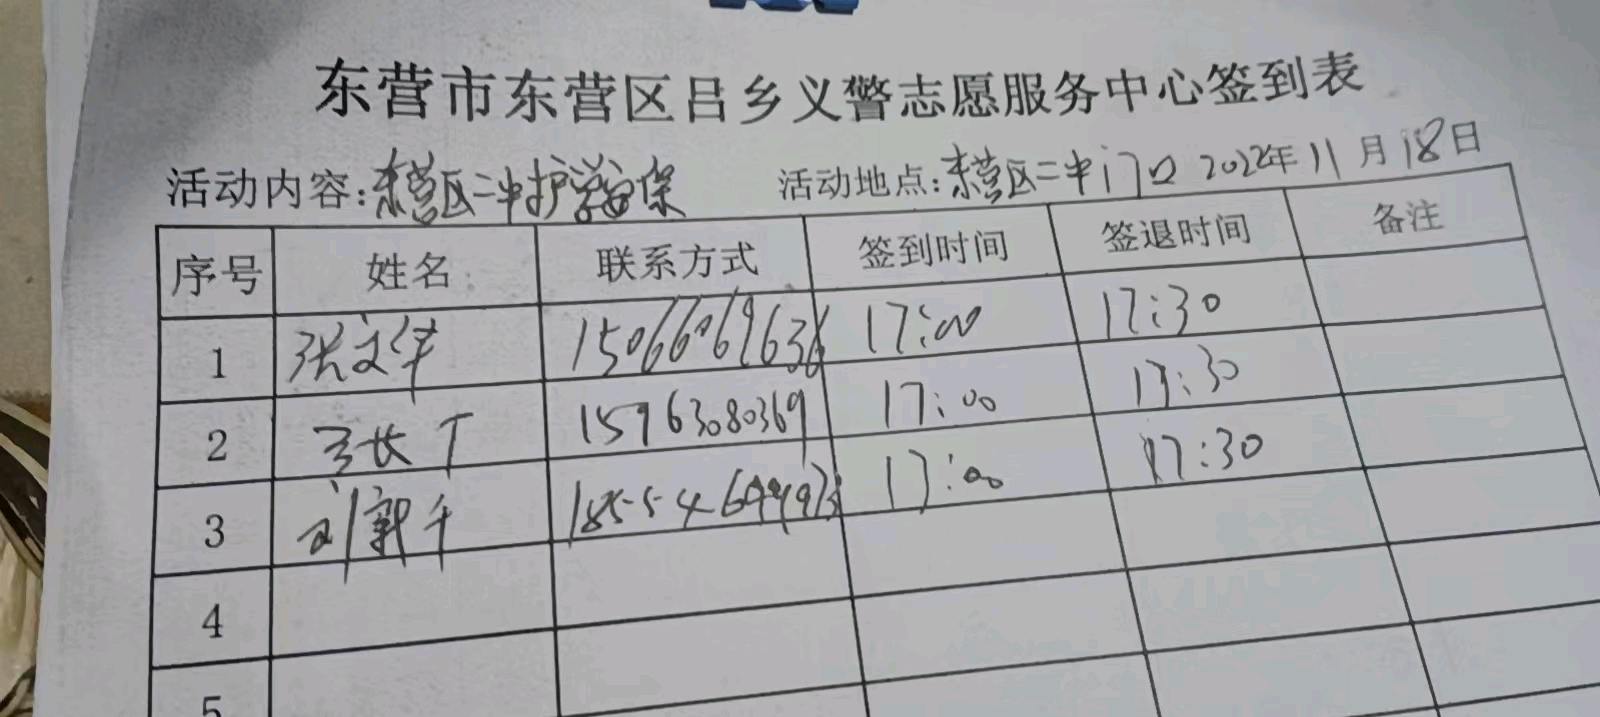 东营市东营区吕乡义警志愿服务中心签到表
活动内容:东营区二中护学安保 活动地点:东营区二中门口 2022年11月18日
序号 姓名 联系方式 签到时间 签退时间 备注
1 张文华 15066069636 17:00 17:30
2 长丁 15963080369 17:00 17:30
3 刘 17:00 17:30
4
5